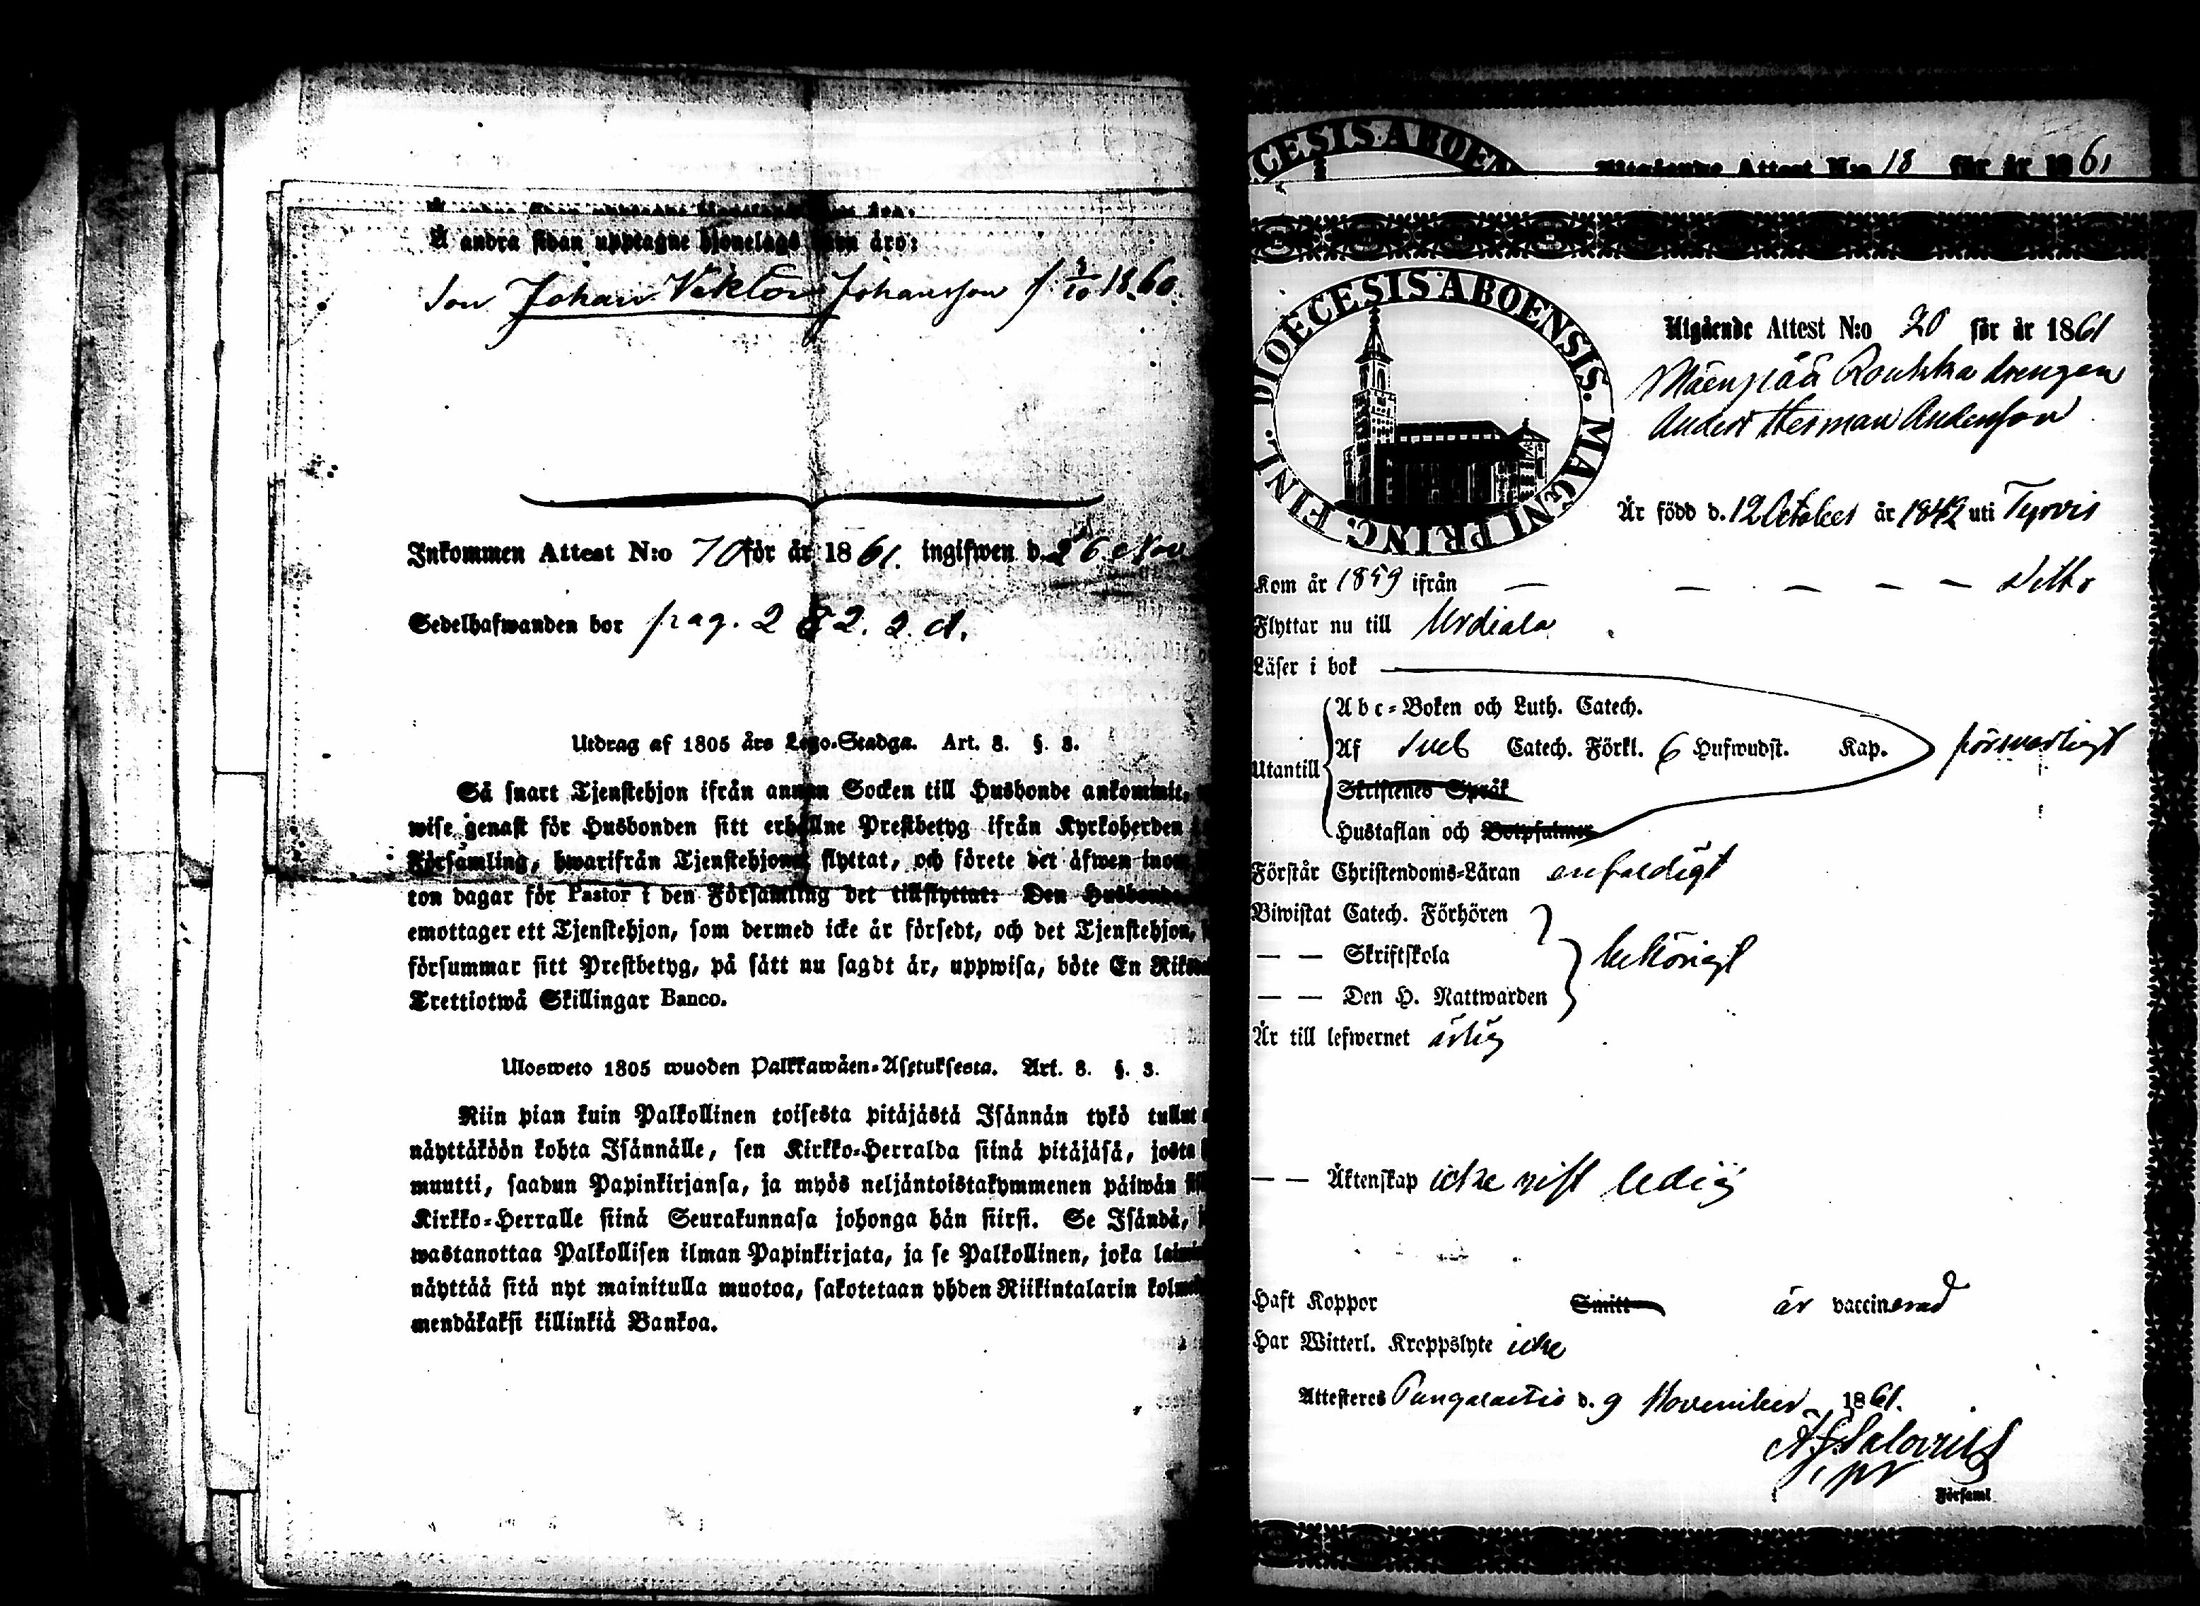 Å andra sidan upptagne hjonelags barn äro:
Son Johan Viktor Johansson f 3/10 1860.
Inkommen Attest N:o 70 för år 1861. ingifwen d. 26 Nov
Sedelhafwanden bor pag. 282. 2. d.
Utdrag af 1805 års Lego-Stadga. Art. 8. §. 3.
Så snart Tjenstehjon ifrån annan Socken till Husbonde ankommit,
wise genast för Husbonden sitt erhållne Prestbetyg ifrån Kyrkoherden
Församling, hwarifrån Tjenstehjonet flyttat, och förete det äfwen inom
ton dagar för Pastor i den Församling det tillflyttat: Den Husbonde
emottager ett Tjenstehjon, som dermed icke är försedt, och det Tjenstehjon,
försummar sitt Prestbetyg, på sätt nu sagdt är, uppwisa, böte En Riks
Trettiotwå Skillingar Banco.
Ulosweto 1805 wuoden Palkkawäen-Asetuksesta. Art. 8. §. 3.
Niin pian kuin Palkollinen toisesta pitäjästä Isännän tykö tullut
näyttäköön kohta Isännälle, sen Kirkko-Herralda siinä pitäjäsä, josta
muutti, saadun Papinkirjansa, ja myös neljäntoistakymmenen päiwän
Kirkko-Herralle siinä Seurakunnasa johonga hän siirsi. Se Isändä,
wastanottaa Palkollisen ilman Papinkirjata, ja se Palkollinen, joka
näyttää sitä nyt mainitulla muotoa, sakotetaan yhden Riikintalarin kolme
mendäkaksi killinkiä Bankoa.
CESIS ABOEN
Utgående Attest N:o 18 för år 1861
FINL. DIOECESIS ABOENSIS. MAGNI PRINC.
Utgående Attest N:o 20 för år 1861
Mäenpää Roukka drengen
Anders Herman Andersson
Är född d. 12 October år 1842 uti Tyrvis
Kom år 1859 ifrån — — — — — ditto
Flyttar nu till Urdiala
Läser i bok
Abc-Boken och Luth. Catech.
Utantill Af Sveb Catech. Förkl. 6 Hufwudst. Kap. försvarligt
Skriftenes Språk
Hustaflan och Botpsalmer
Förstår Christendoms-Läran enfaldigt
Biwistat Catech. Förhören
— — Skriftskola behörigt
— — Den H. Nattwarden
Är till lefwernet ärlig
— — Äktenskap icke gift ledig
Haft Koppor Smitt är vaccinerad
Har Witterl. Kroppslyte icke
Attesteres Pungalaitio d. 9 November 1861.
Salovius
Församl